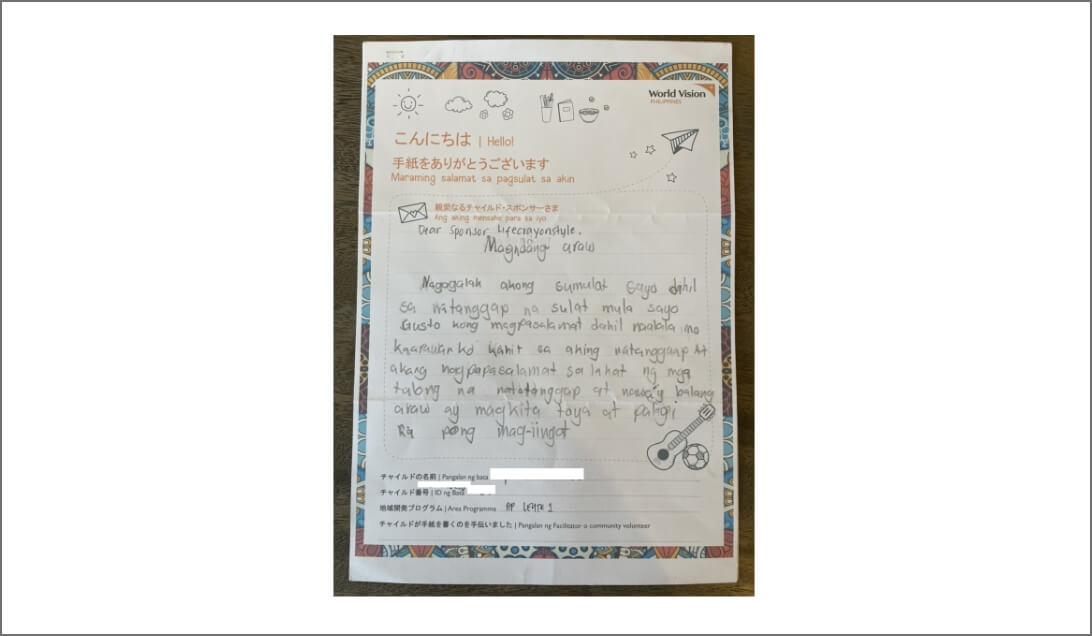 World Vision
PHILIPPINES
こんにちは | Hello!
手紙をありがとうございます
Maraming salamat sa pagsulat sa akin
親愛なるチャイルド・スポンサーさま
Ang aking mensahe para sa iyo
Dear Sponsor Lifecrayonstyle.
Magndang araw
Nagagalak akong sumulat sayo dahil
sa natanggap na sulat mula sayo
Gusto kong magpasalamat dahil naalala mo
kaarawan ko kahit sa aking natanggap At
akong nagpapasalamat sa lahat ng mga
tulong na natatanggap at nawa'y balang
araw ay magkita taya at palagi
Ka pong mag-iingat
チャイルドの名前 | Pangalan ng bata
チャイルド番号 | ID ng Bata
地域開発プログラム | Area Programme AP LEYTE 1
チャイルドが手紙を書くのを手伝いました | Pangalan ng Facilitator o community volunteer